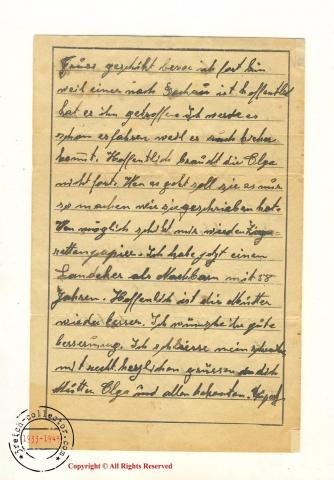 Grüss geschikt bevor ich fort bin
weil einer nach Dachau ist hoffentlich
hat er ihn getroffen ich werde es
schon erfahren weil er auch hieher
kommt. Hoffentlich braucht die Olga
nicht fort. Wen es geht soll sie es nur
so machen wie sie geschrieben hat.
Wen möglich schikt mir wieder Ziga-
rettenpapier. Ich habe jetzt einen
Landeker als Nachbarn mit 58
Jahren. Hoffenlich ist die Mutter
wieder besser. Ich wünsche ihr gute
besserung. Ich schliesse mein schreiben
mit recht herzlichen grüssen an dich
Mutter Olga und allen bekanten.
3reich-collector.com
1933-1945
Copyright © All Rights Reserved